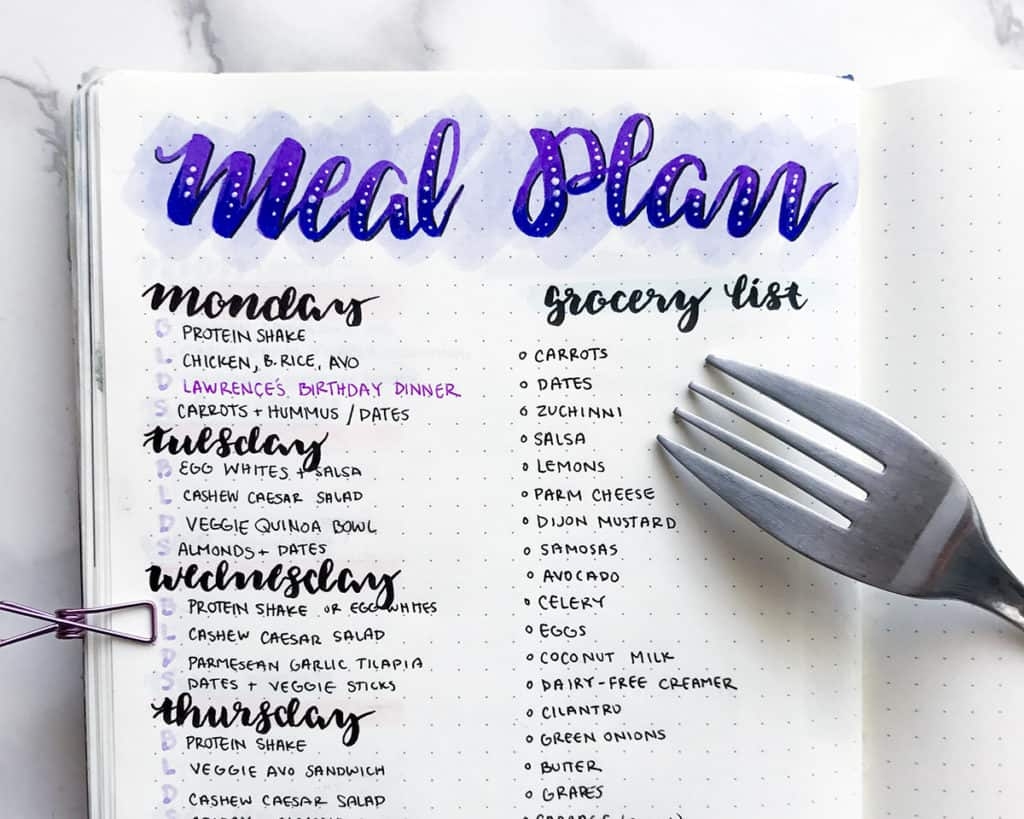 Meal Plan
monday
B PROTEIN SHAKE
L CHICKEN, B. RICE, AVO
D LAWRENCE'S BIRTHDAY DINNER
S CARROTS + HUMMUS / DATES
tuesday
B EGG WHITES + SALSA
L CASHEW CAESAR SALAD
D VEGGIE QUINOA BOWL
S ALMONDS + DATES
wednesday
B PROTEIN SHAKE OR EGG WHITES
L CASHEW CAESAR SALAD
D PARMESEAN GARLIC TILAPIA
S DATES + VEGGIE STICKS
thursday
B PROTEIN SHAKE
L VEGGIE AVO SANDWICH
D CASHEW CAESAR SALAD
grocery list
CARROTS
DATES
ZUCHINNI
SALSA
LEMONS
PARM CHEESE
DIJON MUSTARD
SAMOSAS
AVOCADO
CELERY
EGGS
COCONUT MILK
DAIRY-FREE CREAMER
CILANTRO
GREEN ONIONS
BUTTER
GRAPES